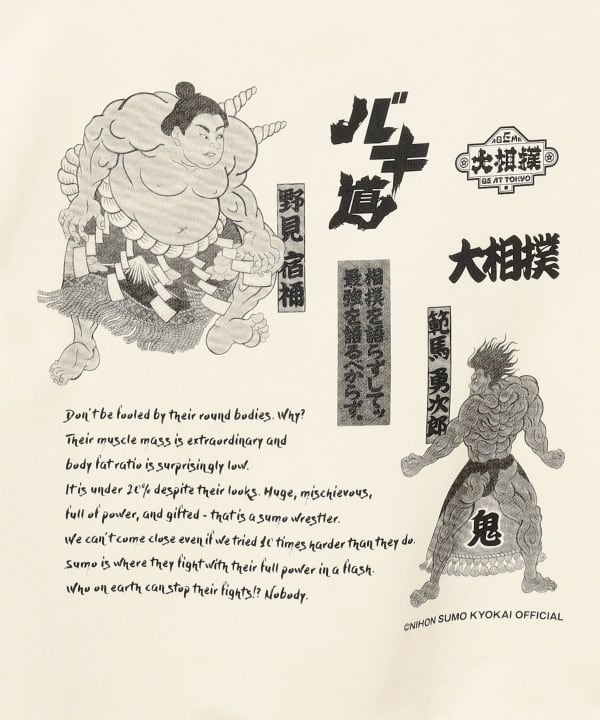 バキ道
ABEMA
大相撲
BE AT TOKYO
大相撲
野見 宿禰
相撲を語らずしてッ
最強を語るべからず。
範馬 勇次郎
鬼
Don't be fooled by their round bodies. Why?
Their muscle mass is extraordinary and
body fat ratio is surprisingly low.
It is under 20% despite their looks. Huge, mischievous,
full of power, and gifted - that is a sumo wrestler.
We can't come close even if we tried 10 times harder than they do.
Sumo is where they fight with their full power in a flash.
Who on earth can stop their fights!? Nobody.
©NIHON SUMO KYOKAI OFFICIAL